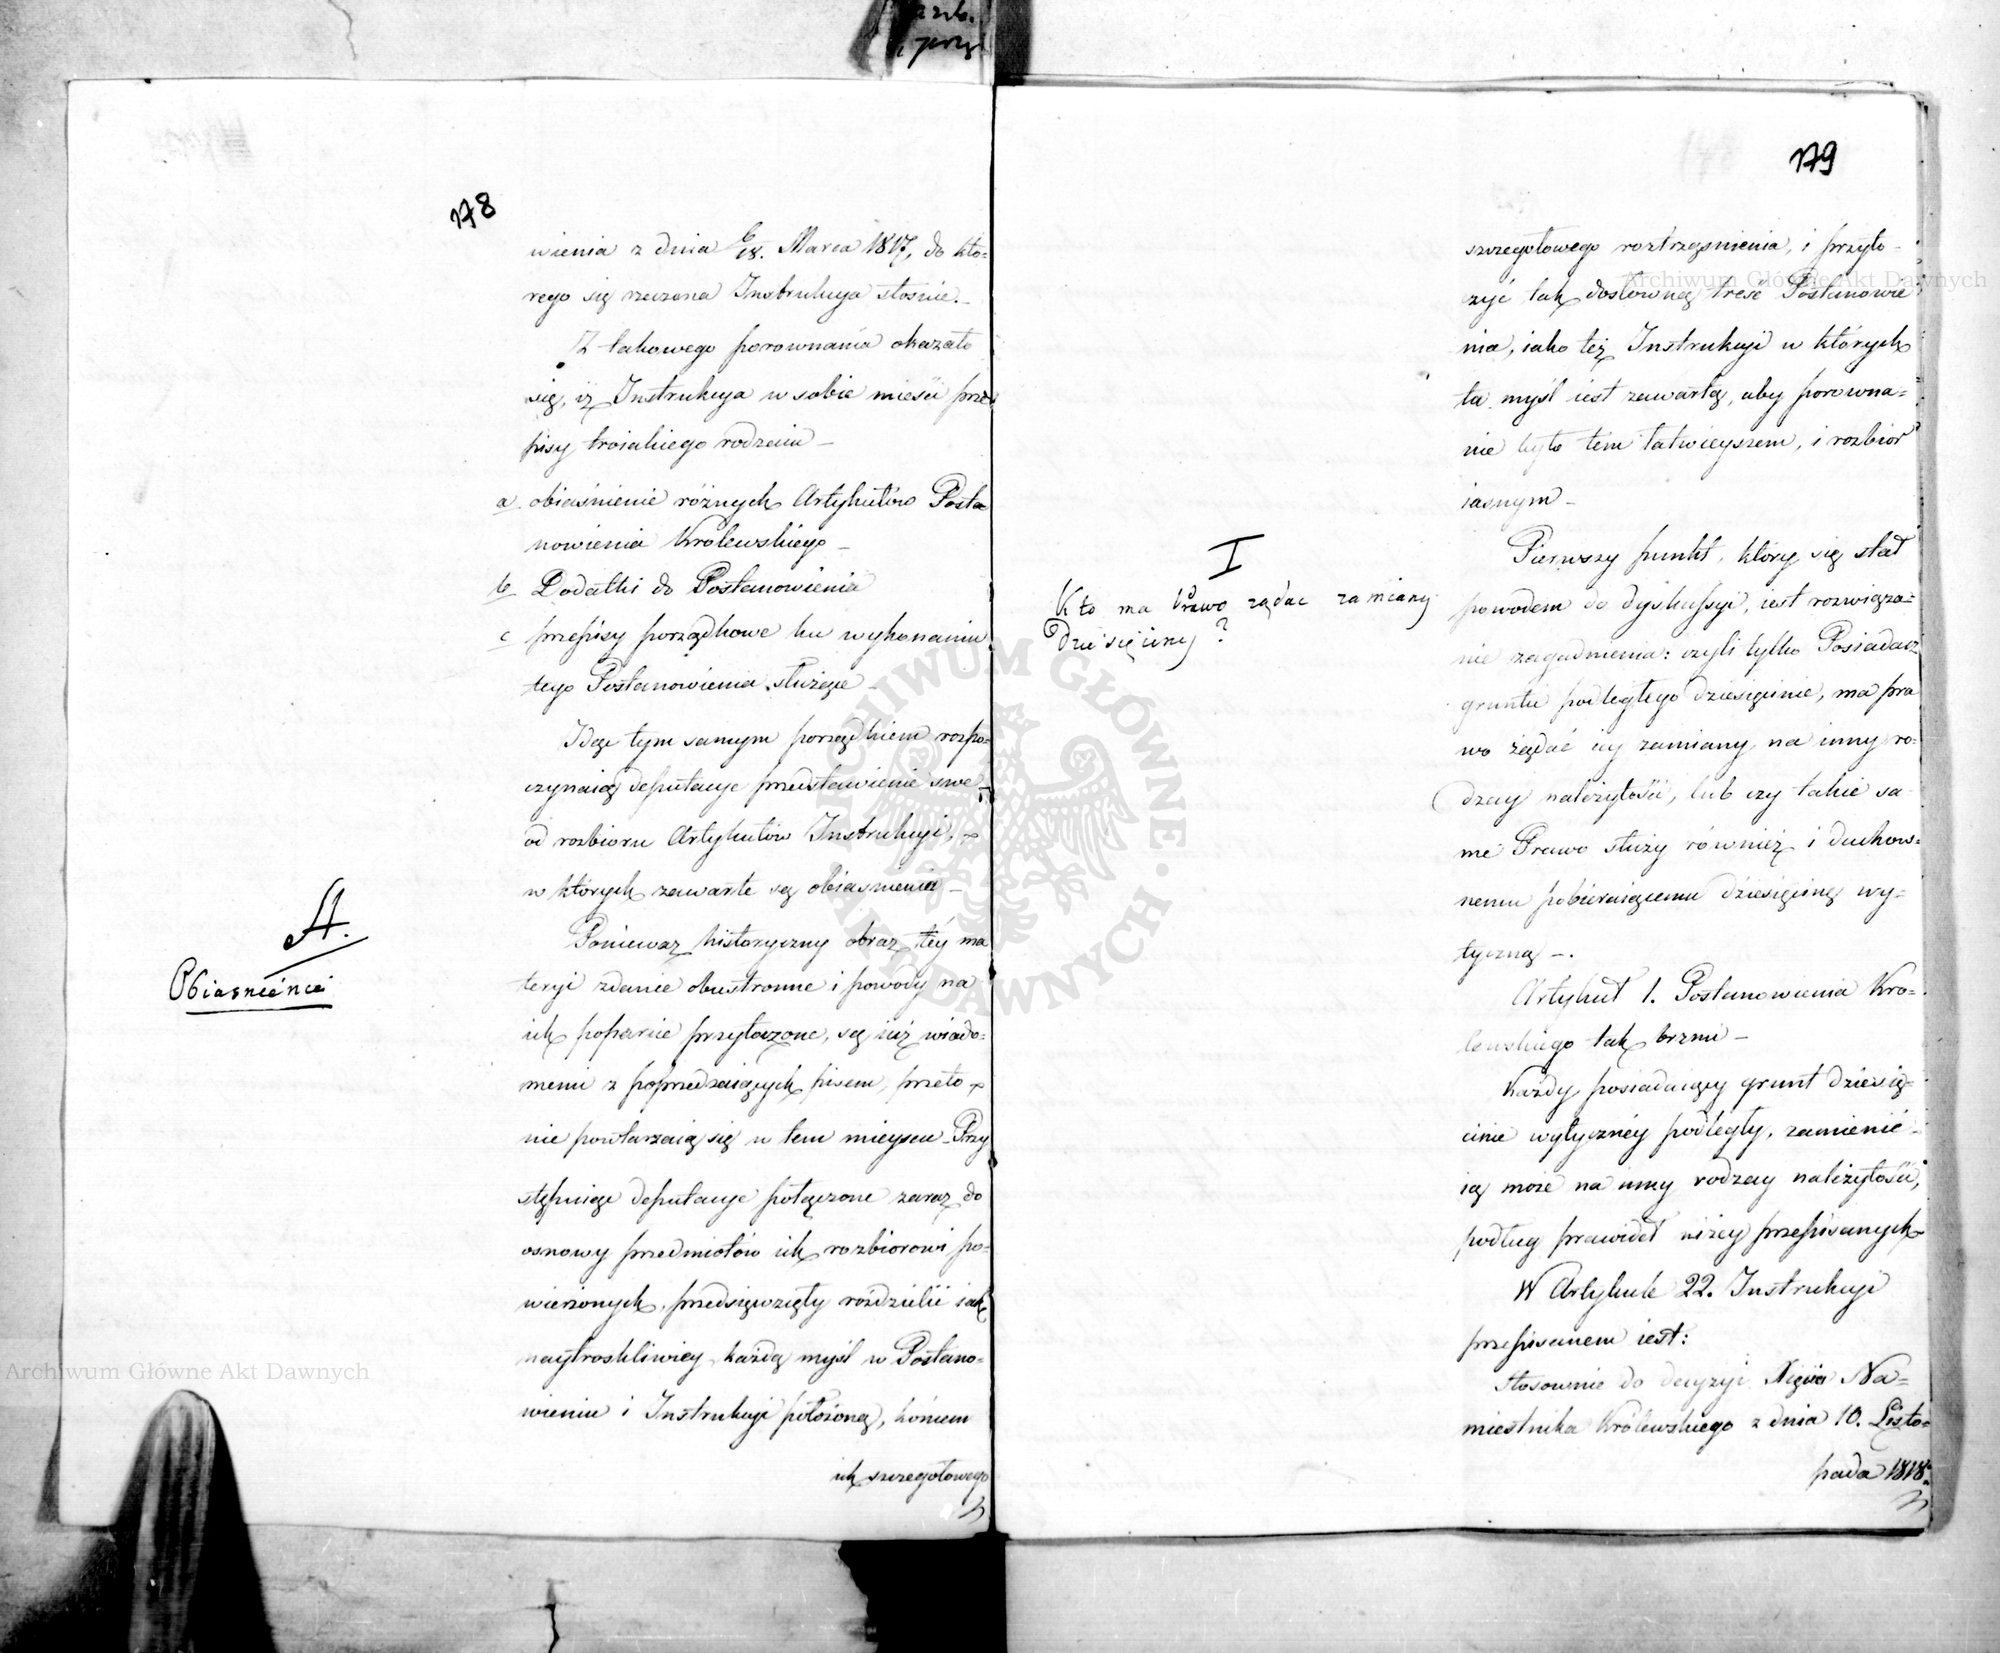 178
wienia z dnia 6/18. Marca 1817, do któ=
rego się rzeczona Instrukcya stosuie.–
Z takowego porownania okazało
się, iż Instrukcya w sobie mieści prze
pisy troiakiego rodzaiu –
a. obiaśnienie różnych Artykułów Posta
nowienia Królewskiego –
b Dodatki do Postanowienia
c przepisy porządkowe ku wykonaniu
tego Postanowienia służące –
Idąc tym samym porządkiem rozpo=
czynaią deputacye przedstawienie swe
od rozbioru Artykułów Instrukcyi,
w których zawarte są obiasnienia –
A.
Obiasnienie
Poniewaz historyczny obraz téy ma
teryi zdanie obustronne i powody na
ich poparcie przytoczone, są iuż wiado=
memi z poprzedzaiących pisem, przeto
nie powtarzaią się w tem mieyscu. Przy
stępuiąc deputacye połączone zaraz do
osnowy przedmiotów ich rozbiorowi po=
wierzonych, przedsięwzięły rozdzielić iak
naytroskliwiey każdą myśl w Postano=
wieniu i Instrukcyi położoną, końcem
ich szczegołowego
179
szczegołowego roztrząsnienia, i przyto=
czyć tak dosłowną treść Postanowie
nia, iako też Instrukcyi w których
ta myśl iest zawartą, aby porowna=
nie było tem łatwieyszem, i rozbior
iasnym –
I
Kto ma Prawo rządac zamiany
Dziesięciny?
Pierwszy punkt, który się stał
powodem do dyskussyi, iest rozwiąza=
nie zagadnienia: czyli tylko Posiadacz
gruntu podległego dziesięcinie, ma pra
wo żądać iey zamiany na inny ro=
dzay należytości, lub czy takie sa=
me Prawo służy również i duchow=
nemu pobieraiącemu dziesięcinę wy=
tyczną –.
Artykuł 1. Postanowienia Kró=
lewskiego tak brzmi –
Każdy posiadaiący grunt dziesię=
cinie wytycznéy podległy, zamienić
ią może na inny rodzay należytości,
podług prawideł niżey przepisanych
W Artykule 22. Instrukcyi
przepisanem iest:
Stosownie do decyzyi Xięcia Na=
miestnika Królewskiego z dnia 10. Listo=
pada 1818.
Archiwum Główne Akt Dawnych
Archiwum Główne Akt Dawnych
ARCHIWUM GŁÓWNE AKT DAWNYCH